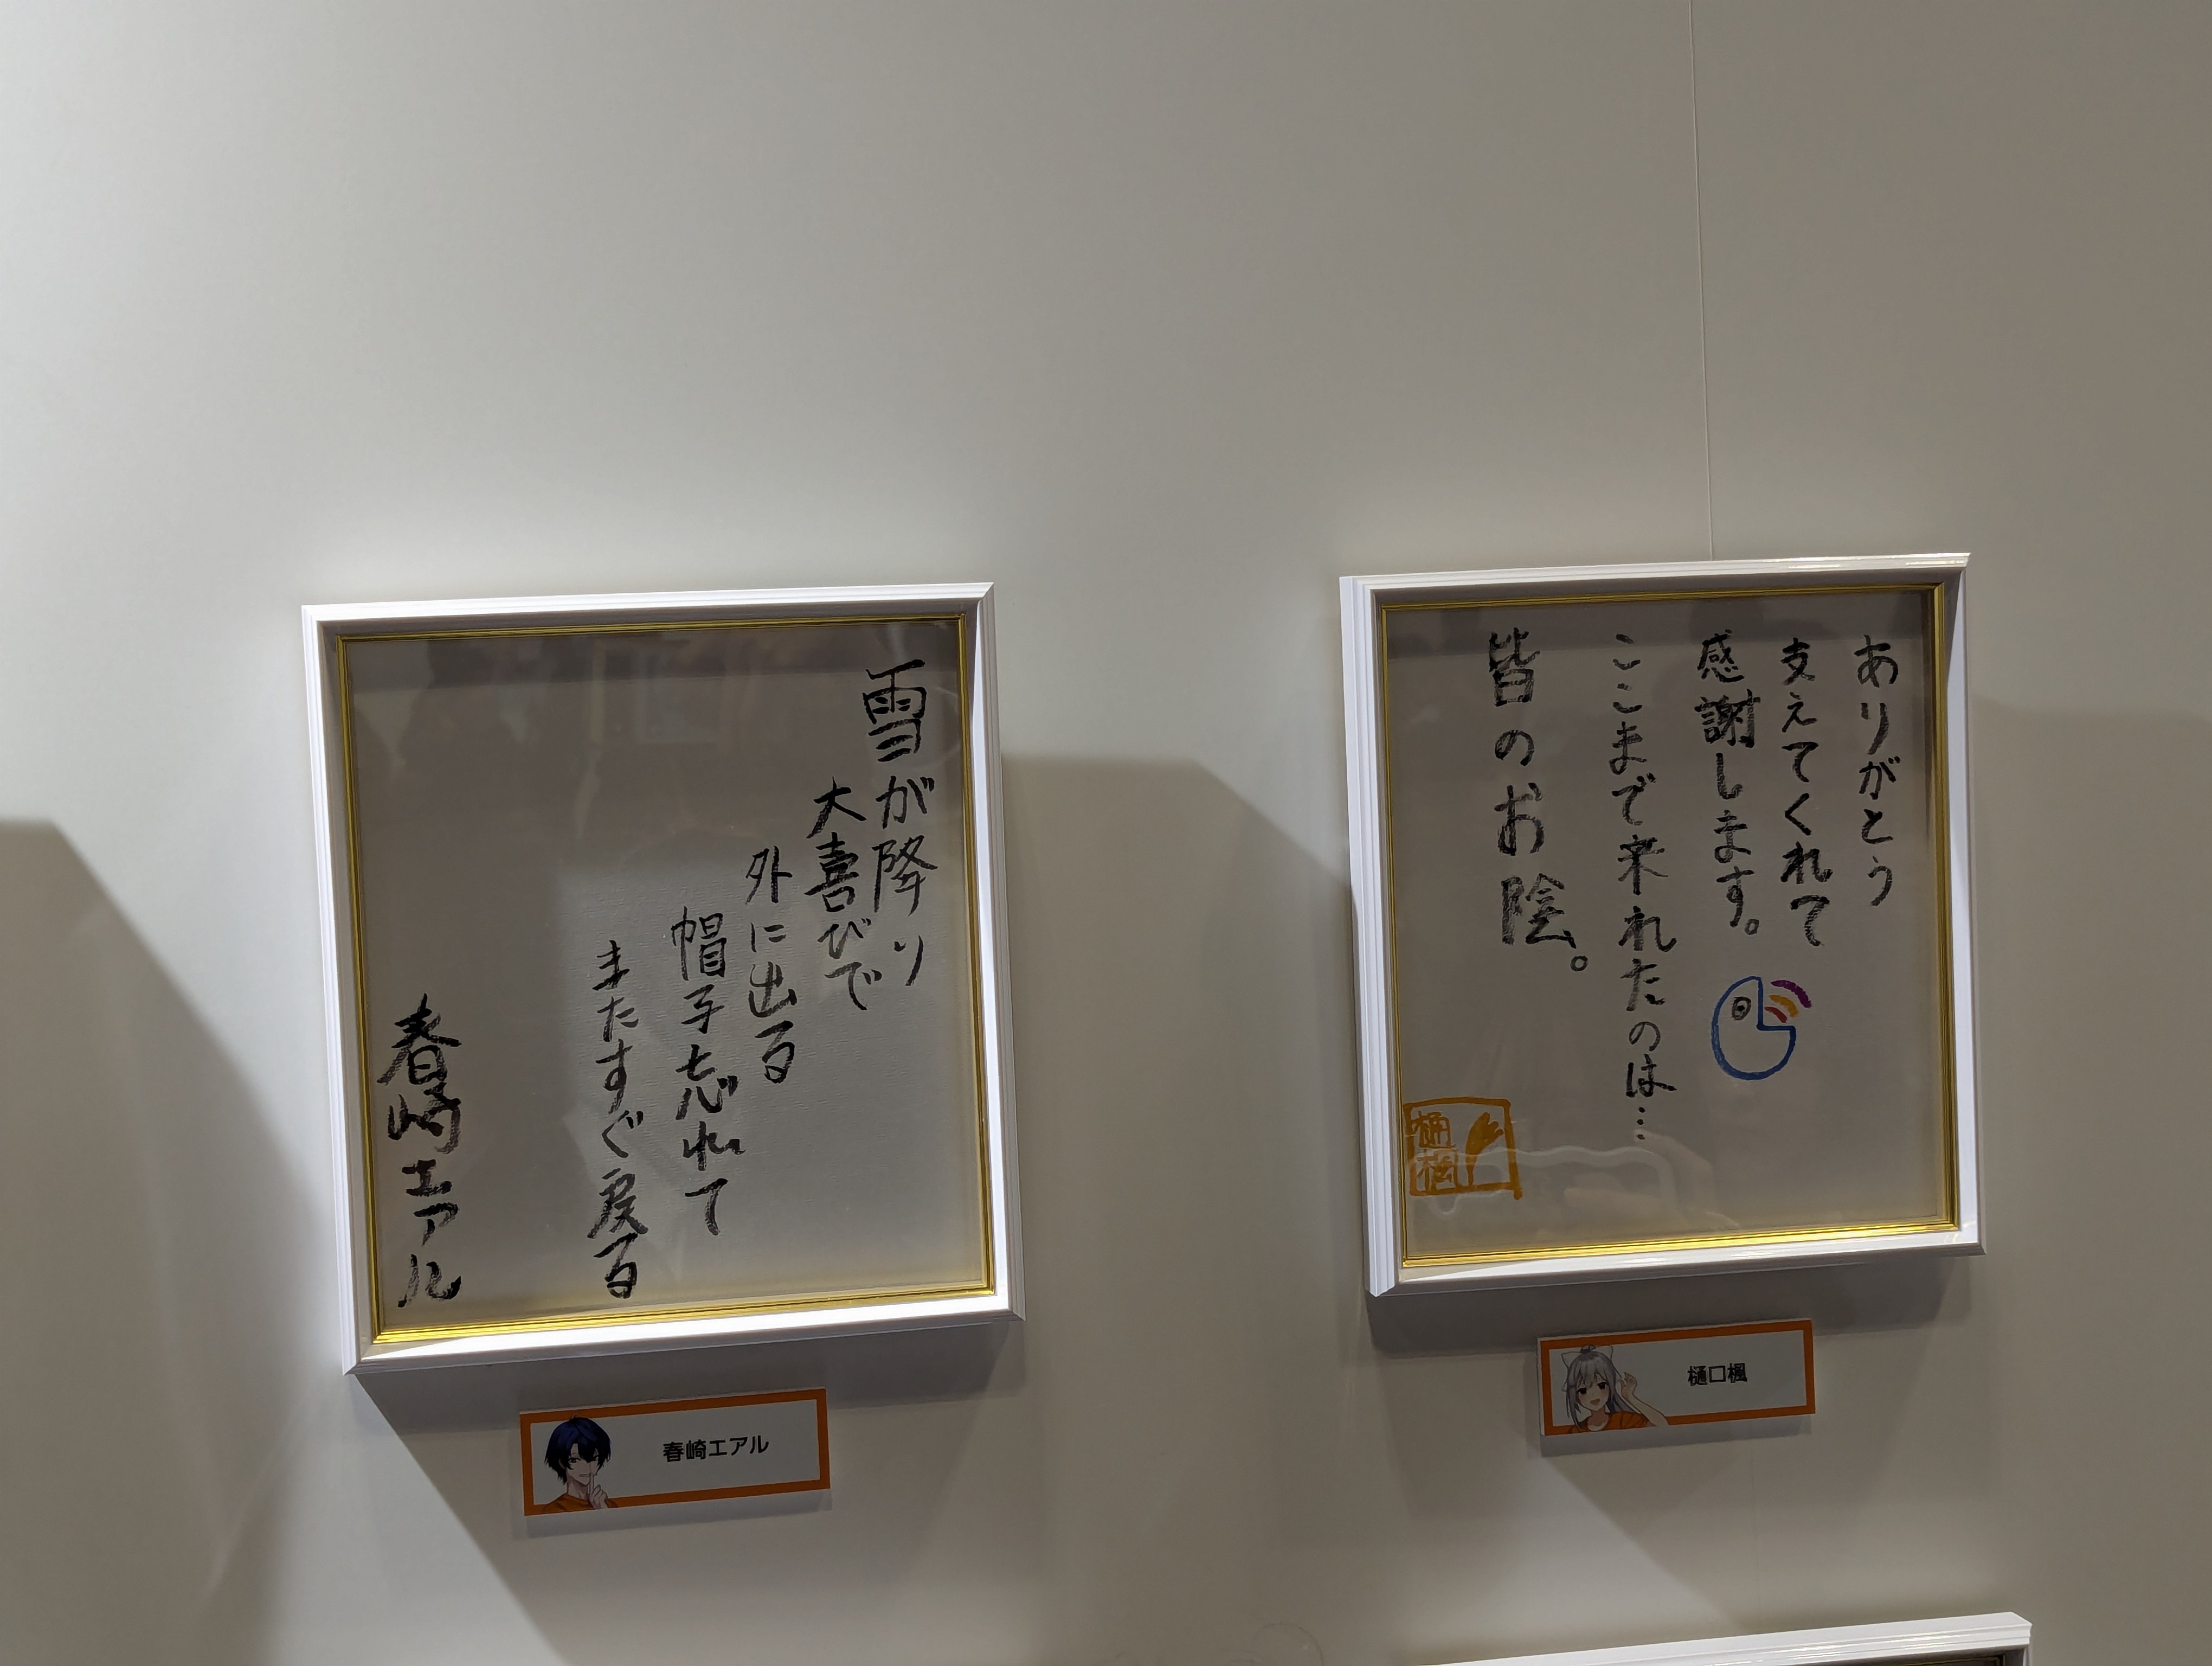 雪が降り
大喜びで
外に出る
帽子忘れて
またすぐ戻る
春崎エアル
春崎エアル
ありがとう
支えてくれて
感謝します。
ここまで来れたのは…
皆のお陰。
樋楓
樋口楓